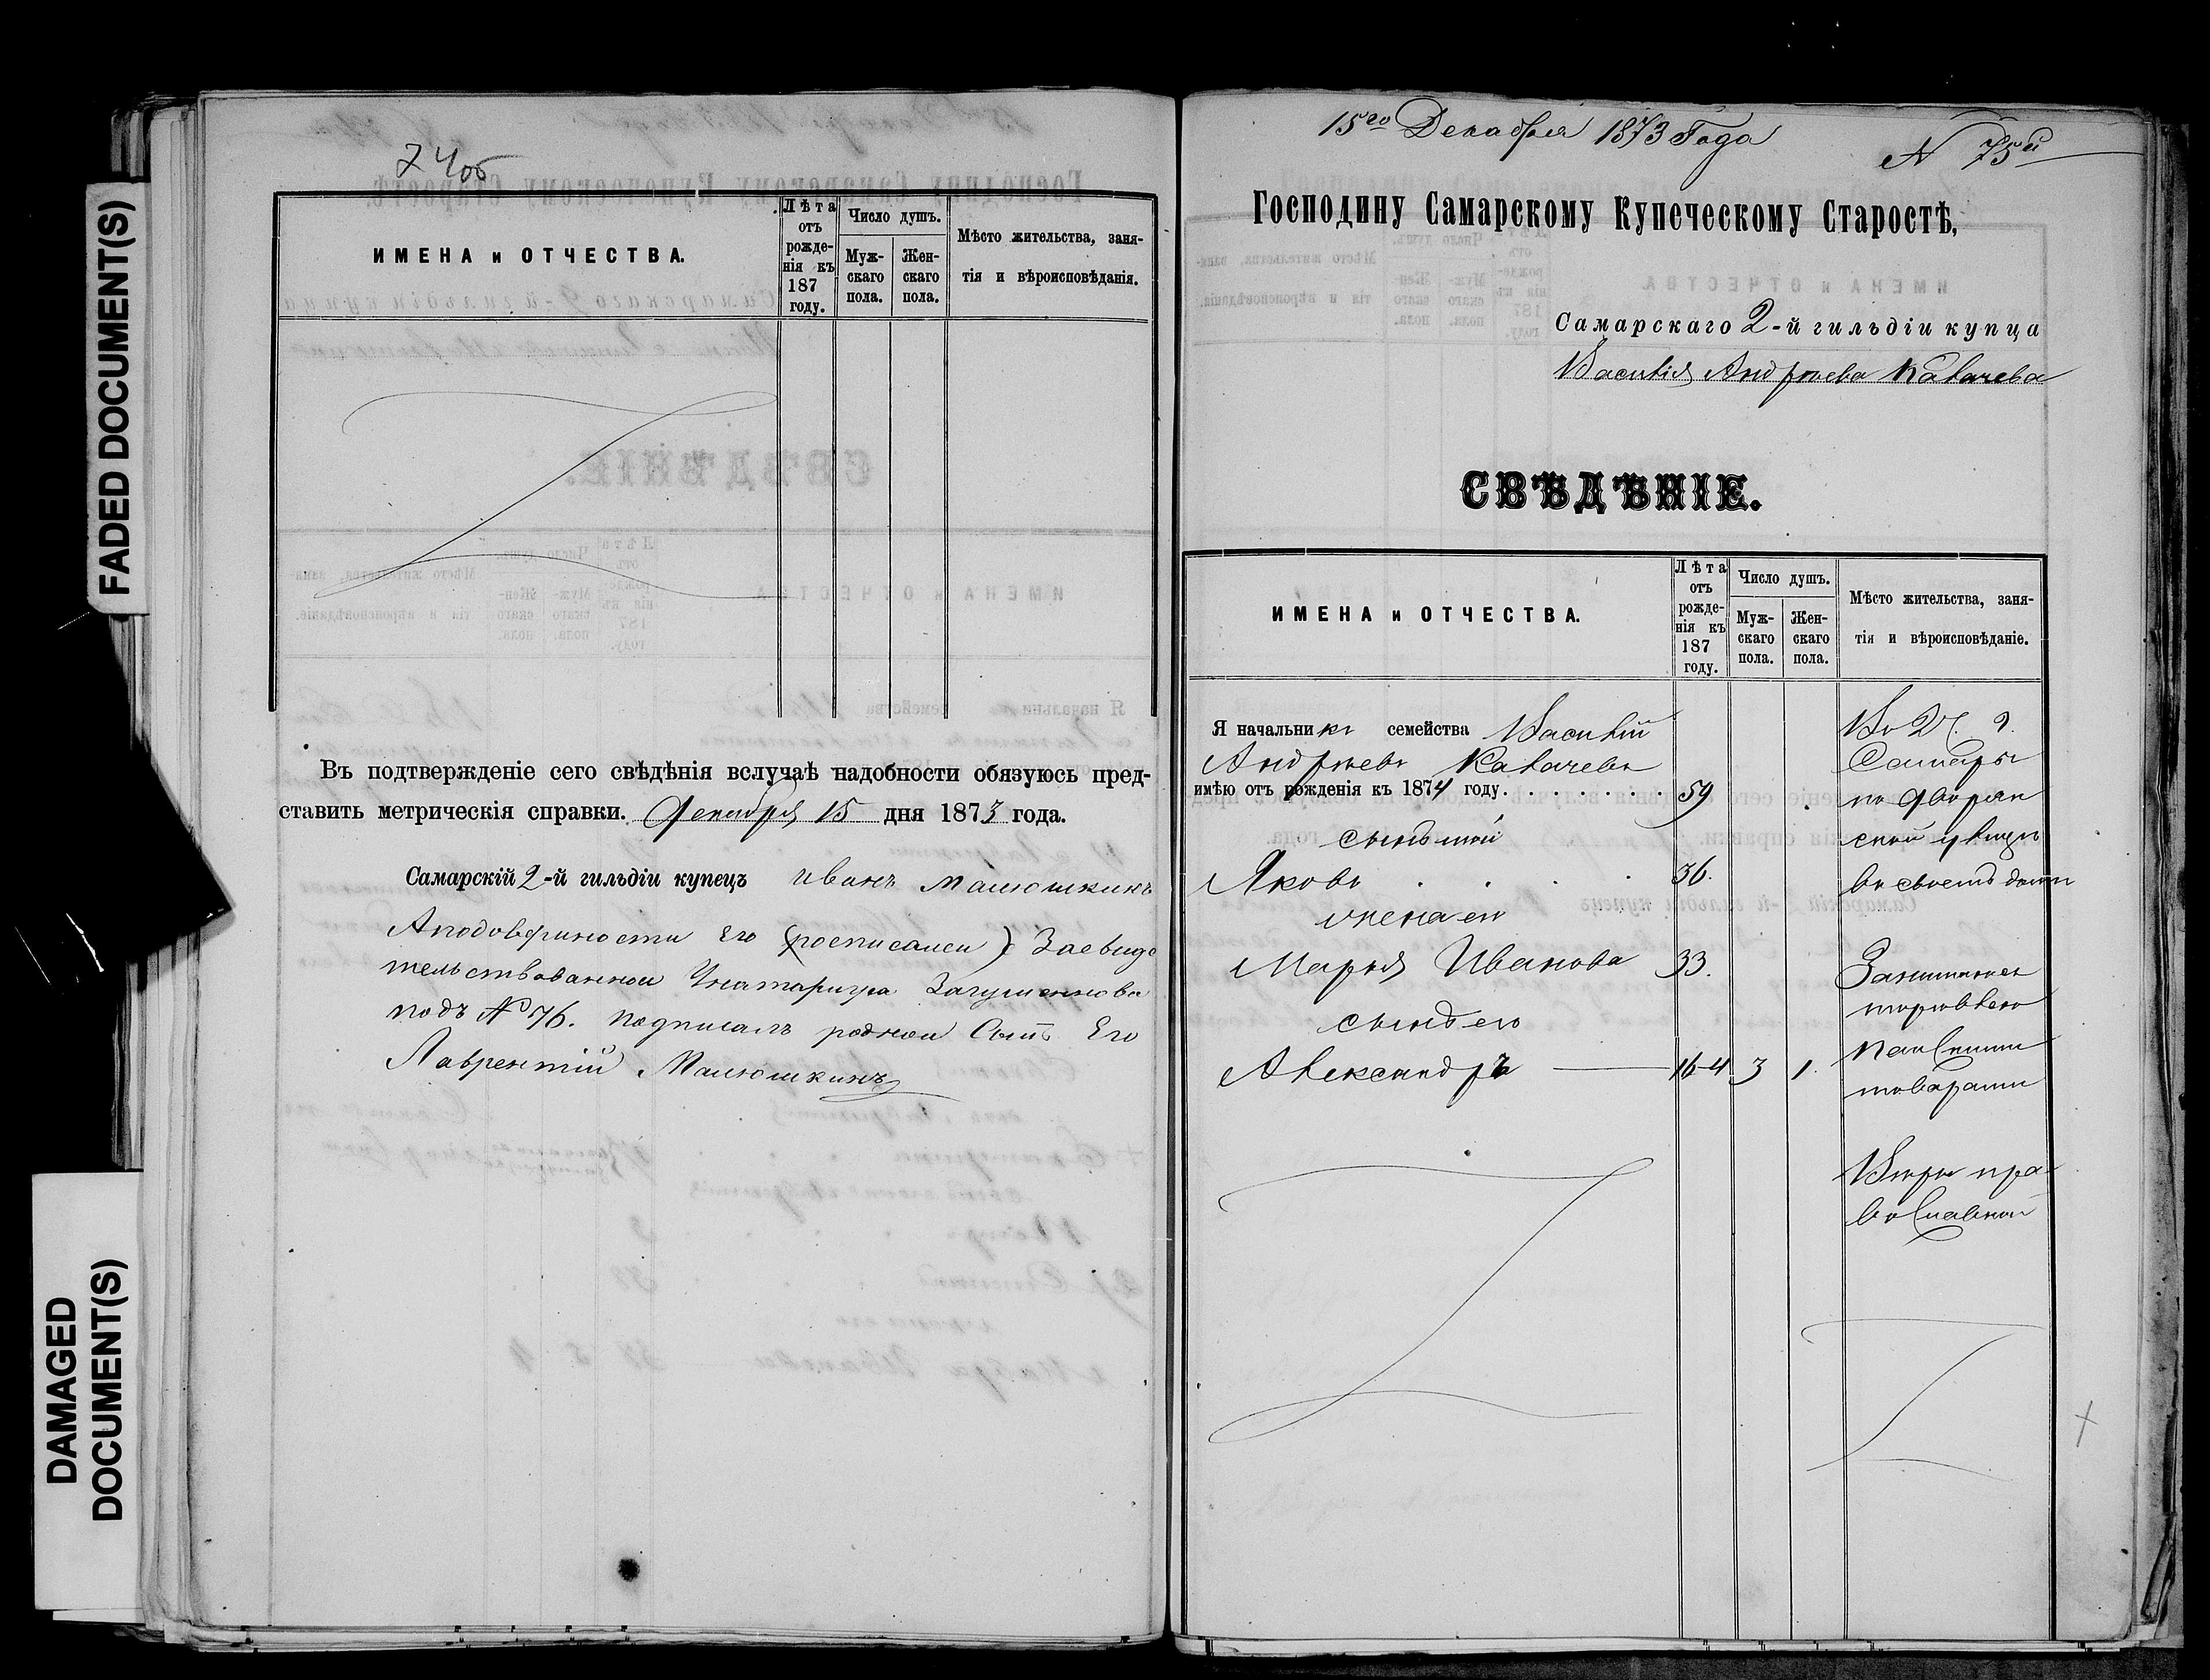 FADED DOCUMENT(S)
DAMAGED
DOCUMENT(S)
74об
ИМЕНА и ОТЧЕСТВА.
Лѣта
отъ
рожде-
нія къ
187
году.
Число душъ.
Муж-
скаго
пола.
Жен-
скаго
пола.
Мѣсто жительства, заня-
тія и вѣроисповѣданія.
Въ подтвержденіе сего свѣдѣнія вслучаѣ надобности обязуюсь пред-
ставить метрическія справки. Декабря 15 дня 1873 года.
Самарскій 2-й гильдіи купецъ Иванъ Маиюшкинъ
Аподовфиности Его (росписалси) Засвиде
тельствованной Унатариуса
подъ № 76. подписалъ родной Сынъ Его
Лаврентій Маиюшкинъ
15го Декабря 1873 Года
N 75й
Господину Самарскому Купеческому Старостѣ,
Самарскаго 2-й гильдіи купца
Василія Андрѣева Калачева
СВѢДѢНІЕ.
ИМЕНА и ОТЧЕСТВА.
Лѣта
отъ
рожде-
нія къ
187
году.
Число душъ.
Муж-
скаго
пола.
Жен-
скаго
пола.
Мѣсто жительства, заня-
тія и вѣроисповѣданіе.
Я начальникъ семейства Василій
Андрѣевъ Калачевъ
имѣю отъ рожденія къ 1874 году. 59
сынъ мой
Яковъ 36.
жена его
Марья Иванова 33.
сынъ его
Александръ 16-4 3 1.
Во 2 Ч. г.
Самары
по дворян
ской улицѣ
въ своемъ домѣ
Занимаюсь
торговлею
товарами
Вѣры пра
вославной